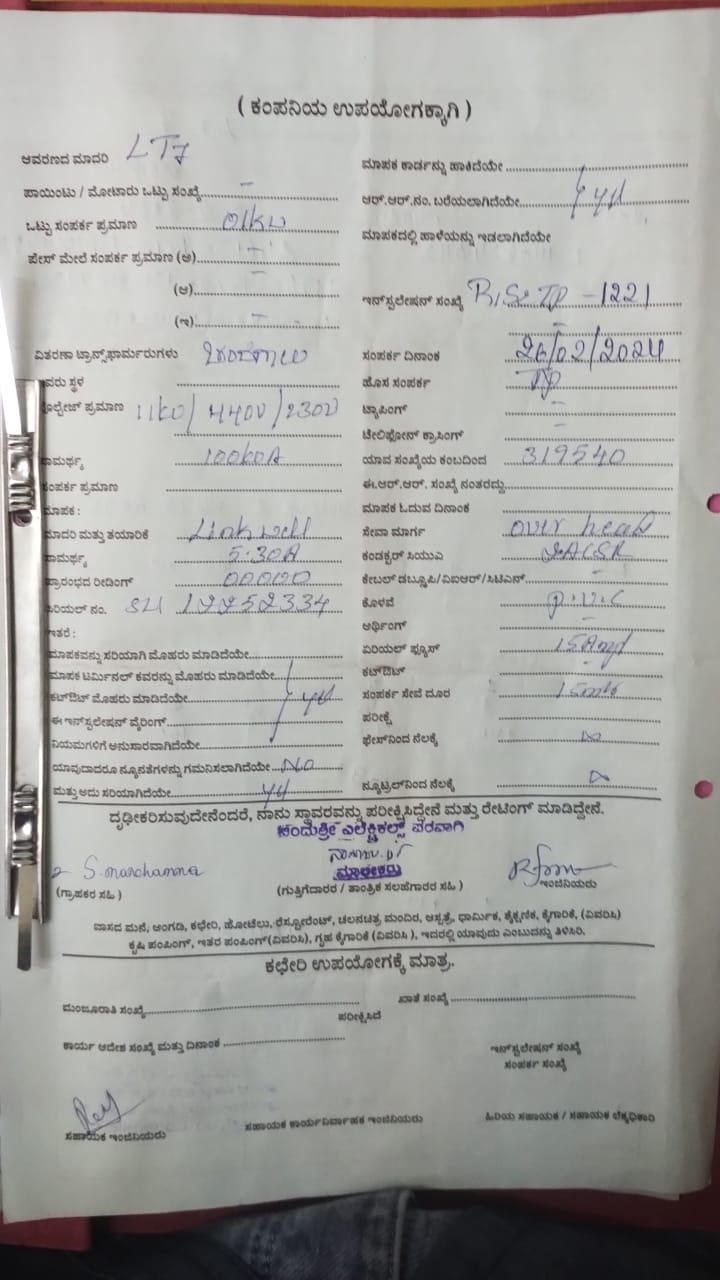 ( ಕಂಪನಿಯ ಉಪಯೋಗಕ್ಕಾಗಿ )
ಆವರಣದ ಮಾದರಿ LT7
ಮಾಪಕ ಕಾರ್ಡನ್ನು ಹಾಕಿದೆಯೇ
ಪಾಯಿಂಟು / ಮೋಟಾರು ಒಟ್ಟು ಸಂಖ್ಯೆ –
ಆರ್.ಆರ್.ನಂ. ಬರೆಯಲಾಗಿದೆಯೇ
ಒಟ್ಟು ಸಂಪರ್ಕ ಪ್ರಮಾಣ
ಮಾಪಕದಲ್ಲಿ ಹಾಳೆಯನ್ನು ಇಡಲಾಗಿದೆಯೇ
ಪೇಸ್ ಮೇಲೆ ಸಂಪರ್ಕ ಪ್ರಮಾಣ (ಅ) –
(ಆ) –
ಇನ್‌ಸ್ಟಲೇಷನ್ ಸಂಖ್ಯೆ -1221
(ಇ) –
ವಿತರಣಾ ಟ್ರಾನ್ಸ್‌ಫಾರ್ಮರುಗಳು
ಸಂಪರ್ಕ ದಿನಾಂಕ 26/02/2024
ವರು ಸ್ಥಳ
ಹೊಸ ಸಂಪರ್ಕ TP
ಪ್ರಮಾಣ 11kv/440V/230V
ಟ್ಯಾಪಿಂಗ್ –
ಟೆಲಿಫೋನ್ ಕ್ರಾಸಿಂಗ್ –
100KVA
ಯಾವ ಸಂಖ್ಯೆಯ ಕಂಬದಿಂದ 319540
ಸಂಪರ್ಕ ಪ್ರಮಾಣ
ಈ.ಆರ್.ಆರ್. ಸಂಖ್ಯೆ ನಂತರದ್ದು
ಮಾಪಕ :
ಮಾಪಕ ಓದುವ ದಿನಾಂಕ
ಮಾದರಿ ಮತ್ತು ತಯಾರಿಕೆ Linkwell
ಸೇವಾ ಮಾರ್ಗ over head
5-30A
ಕಂಡಕ್ಟರ್ ಸಿಯುವಿ
ಪ್ರಾರಂಭದ ರೀಡಿಂಗ್ 00000
ಕೇಬಲ್ ಡಬ್ಲ್ಯೂಪಿ/ವಿಐಆರ್/ಸಿಟಿಎಸ್ –
ಸಿರಿಯಲ್ ನಂ.
ಕೊಳವೆ P.V.C
ಇತರೆ :
ಅರ್ಥಿಂಗ್ –
ಮಾಪಕವನ್ನು ಸರಿಯಾಗಿ ಮೊಹರು ಮಾಡಿದೆಯೇ
ಏರಿಯಲ್ ಫ್ಯೂಸ್ 15Amp
ಮಾಪಕ ಟರ್ಮಿನಲ್ ಕವರನ್ನು ಮೊಹರು ಮಾಡಿದೆಯೇ
ಕಟ್‌ಔಟ್
ಕಟ್‌ಔಟ್ ಮೊಹರು ಮಾಡಿದೆಯೇ
ಸಂಪರ್ಕ ಸೇವೆ ದೂರ
ಈ ಇನ್‌ಸ್ಟಲೇಷನ್ ವೈರಿಂಗ್
ಪರೀಕ್ಷೆ
ನಿಯಮಗಳಿಗೆ ಅನುಸಾರವಾಗಿದೆಯೇ
ಫೇಸ್‌ನಿಂದ ನೆಲಕ್ಕೆ
ಯಾವುದಾದರೂ ನ್ಯೂನತೆಗಳನ್ನು ಗಮನಿಸಲಾಗಿದೆಯೇ NO
ಮತ್ತು ಅದು ಸರಿಯಾಗಿದೆಯೇ
ನ್ಯೂಟ್ರಲ್‌ನಿಂದ ನೆಲಕ್ಕೆ
ದೃಢೀಕರಿಸುವುದೇನೆಂದರೆ, ನಾನು ಸ್ಥಾವರವನ್ನು ಪರೀಕ್ಷಿಸಿದ್ದೇನೆ ಮತ್ತು ರೇಟಿಂಗ್ ಮಾಡಿದ್ದೇನೆ.
ಎಲೆಕ್ಟ್ರಿಕಲ್ಸ್ ಪರವಾಗಿ
ಮಾಲೀಕರು
(ಗ್ರಾಹಕರ ಸಹಿ )
(ಗುತ್ತಿಗೆದಾರರ / ತಾಂತ್ರಿಕ ಸಲಹೆಗಾರರ ಸಹಿ )
ಇಂಜಿನಿಯರು
ವಾಸದ ಮನೆ, ಅಂಗಡಿ, ಕಛೇರಿ, ಹೋಟೆಲು, ರೆಸ್ಟೋರೆಂಟ್, ಚಲನಚಿತ್ರ ಮಂದಿರ, ಆಸ್ಪತ್ರೆ, ಧಾರ್ಮಿಕ, ಶೈಕ್ಷಣಿಕ, ಕೈಗಾರಿಕೆ, (ವಿವರಿಸಿ)
ಕೃಷಿ ಪಂಪಿಂಗ್, ಇತರ ಪಂಪಿಂಗ್(ವಿವರಿಸಿ), ಗೃಹ ಕೈಗಾರಿಕೆ (ವಿವರಿಸಿ ), ಇದರಲ್ಲಿ ಯಾವುದು ಎಂಬುದನ್ನು ತಿಳಿಸಿರಿ.
ಕಛೇರಿ ಉಪಯೋಗಕ್ಕೆ ಮಾತ್ರ.
ಮಂಜೂರಾತಿ ಸಂಖ್ಯೆ
ಖಾತೆ ಸಂಖ್ಯೆ
ಪರೀಕ್ಷಿಸಿದೆ
ಕಾರ್ಯ ಆದೇಶ ಸಂಖ್ಯೆ ಮತ್ತು ದಿನಾಂಕ
ಇನ್‌ಸ್ಟಲೇಷನ್ ಸಂಖ್ಯೆ
ಸಂಪರ್ಕ ಸಂಖ್ಯೆ
ಸಹಾಯಕ ಇಂಜಿನಿಯರು
ಸಹಾಯಕ ಕಾರ್ಯನಿರ್ವಾಹಕ ಇಂಜಿನಿಯರು
ಹಿರಿಯ ಸಹಾಯಕ / ಸಹಾಯಕ ಲೆಕ್ಕಾಧಿಕಾರಿ